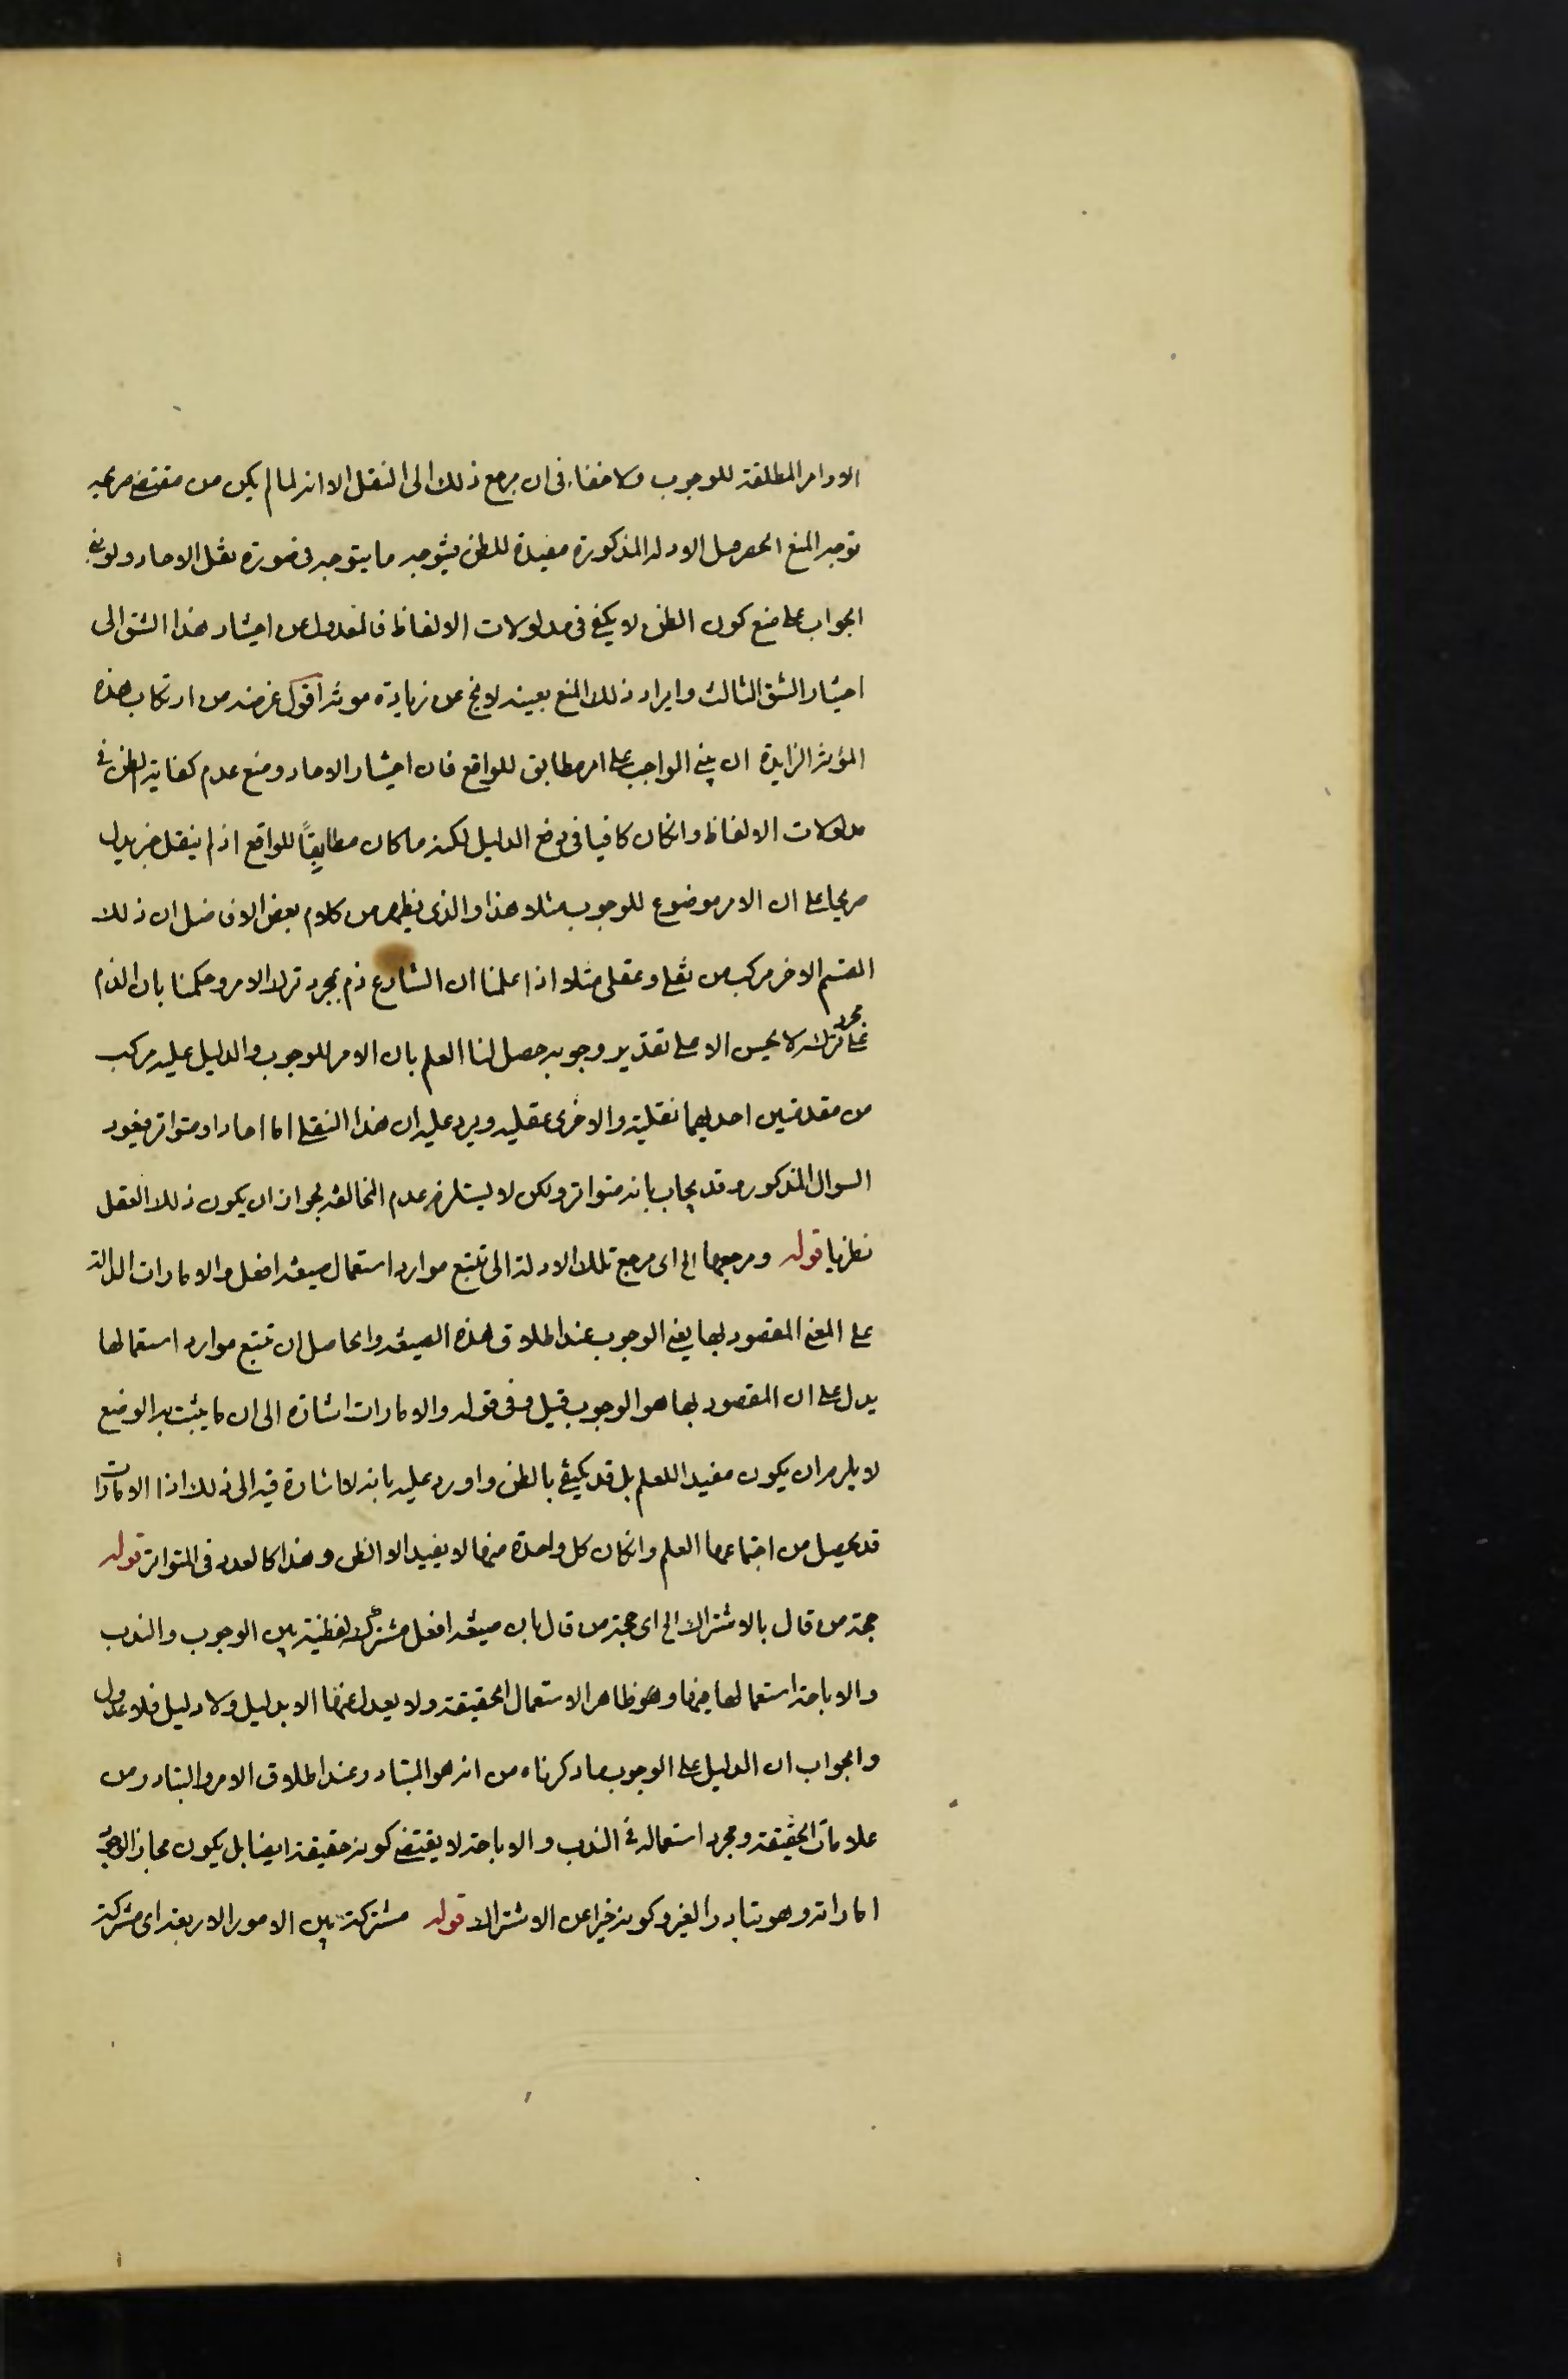 الاوامر المطلقة للوجوب ولا خفاء فى ان مرجع ذلك الى النقل الا انه لما لم يكن من مقتضى صريحه
توجه المنع الحصر وصل الادلة المذكورة مفيدة للظن فيتوجه ما يتوجه فى صورة نقل الاحاد ولو بنى
الجواب على منع كون الظن لا يكفى فى مدلولات الالفاظ فالعدول عن اختيار هذا الشق الى
اختيار الشق الثالث وايراد ذلك المنع بعينه لا يخ عن زيادة مونة اقول غرضه من ارتكاب هذه
المؤنة الزايدة ان يبنى الجواب على امر مطابق للواقع فان اختيار الاحاد ومنع عدم كفاية الظن فى
مدلولات الالفاظ وانكان كافيا فى دفع الدليل لكنه ما كان مطابقًا للواقع اذ لم ينقل خبر يدل
صريحا على ان الامر موضوع للوجوب مثلا هذا والذى يظهر من كلام بعض الافاضل ان ذلك
القسم الاخر مركب من نقلى وعقلى مثلا اذا علمنا ان الشارع ذم بمجرد ترك الامر وحكمنا بان الذم
على مجرد تركه لا يحسن الا على تقدير وجوبه حصل لنا العلم بان الامر للوجوب والدليل عليه مركب
من مقدمتين احديهما نقلية والاخرى عقلية ويرد عليه ان هذا النقلى اما احاد او متواتر فيعود
السوال المذكور وقد يجاب بانه متواتر ولكن لا يستلزم عدم المخالفة لجواز ان يكون ذلك العقل
نظريا قوله ومرجعها الخ اى مرجع تلك الادلة الى تتبع موارد استعمال صيغة افعل والامارات الدالة
على المعنى المقصود بها يعنى الوجوب عند اطلاق هذه الصيغة والحاصل ان تتبع موارد استعمالها
يدل على ان المقصود بها هو الوجوب قيل وفى قوله والامارات اشارة الى ان ما يثبت به الوضع
لا يلزم ان يكون مفيدا للعلم بل قد يكتفى بالظن واورد عليه بانه لا اشارة فيه الى ذلك اذا الامارات
قد يحصل من اجتماعها العلم وانكان كل واحدة منها لا يفيد الا الظن وهذا كالعدد فى المتواتر قوله
حجة من قال بالاشتراك الخ اى حجة من قال بان صيغة افعل مشتركة لفظية بين الوجوب والندب
والاباحة استعمالها فيها وهو ظاهر الاستعمال الحقيقة ولا يعدل عنها الا بدليل ولا دليل فلا عدول
والجواب ان الدليل على الوجوب ما ذكرناه من انه هو المتبادر عند اطلاق الامر والتبادر من
علامات الحقيقة ومجرد استعماله فى الندب والاباحة لا يقتضى كونه حقيقة ايضا بل يكون مجازا لوجود
اماراته وهو تبادر الغير وكونه خيرا عن الاشتراك قوله مشتركة بين الامور الاربعة اى مشتركة